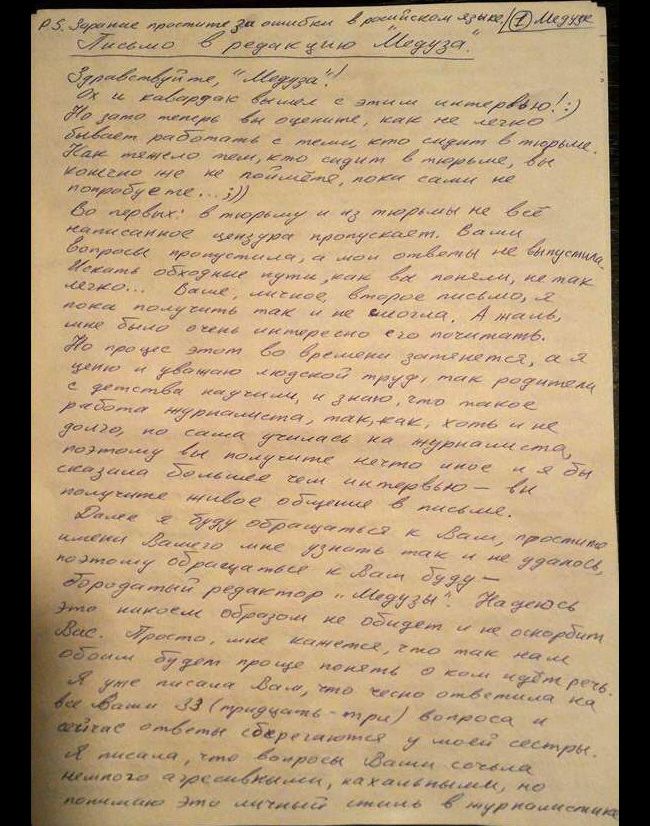 P.S. Зарание простите за ошибки в росийском языке/ 1 Медузе
Письмо в редакцию "Медуза".
Здравствуйте, "Медуза"!
Ох и кавардак вышел с этим интервью! :)
Но зато теперь вы оцените, как не легко
бывает работать с теми, кто сидит в тюрьме.
Как тяжело тем, кто сидит в тюрьме, вы
конечно же не поймёте, пока сами не
попробуете...;))
Во первых: в тюрьму и из тюрьмы не всё
написанное цензура пропускает. Вами
вопросы пропустила, а мои ответы не выпустила.
Искать обходные пути, как вы поняли, не так
легко... Ваше, личное, второе письмо, я
пока получить так и не смогла. А жаль,
мне было очень интересно его почитать.
Но процес этот во времени затянется, а я
ценю и уважаю людской труд, так родители
с детства научили, и знаю, что такое
работа журналиста, так, как, хоть и не
долго, но сама училась на журналиста,
поэтому вы получите нечто иное и я бы
сказала большее чем интервью – вы
получите живое общение в письме.
Далее я буду обращаться к Вам, простите
имени Вашего мне узнать так и не удалось,
поэтому обращаться к Вам буду –
бородатый редактор "Медузы". Надеюсь
это никоем образом не обидет и не оскорбит
Вас. Просто, мне кажется, что так нам
обоим будет проще понять о ком идёт речь.
Я уже писала Вам, что чесно ответила на
все Ваши 33 (тридцать-три) вопроса и
сейчас ответы сберегаются у моей сестры.
Я писала, что вопросы Ваши сочла
немного агресивными, нахальными, но
понимаю это личный стиль в журналистике